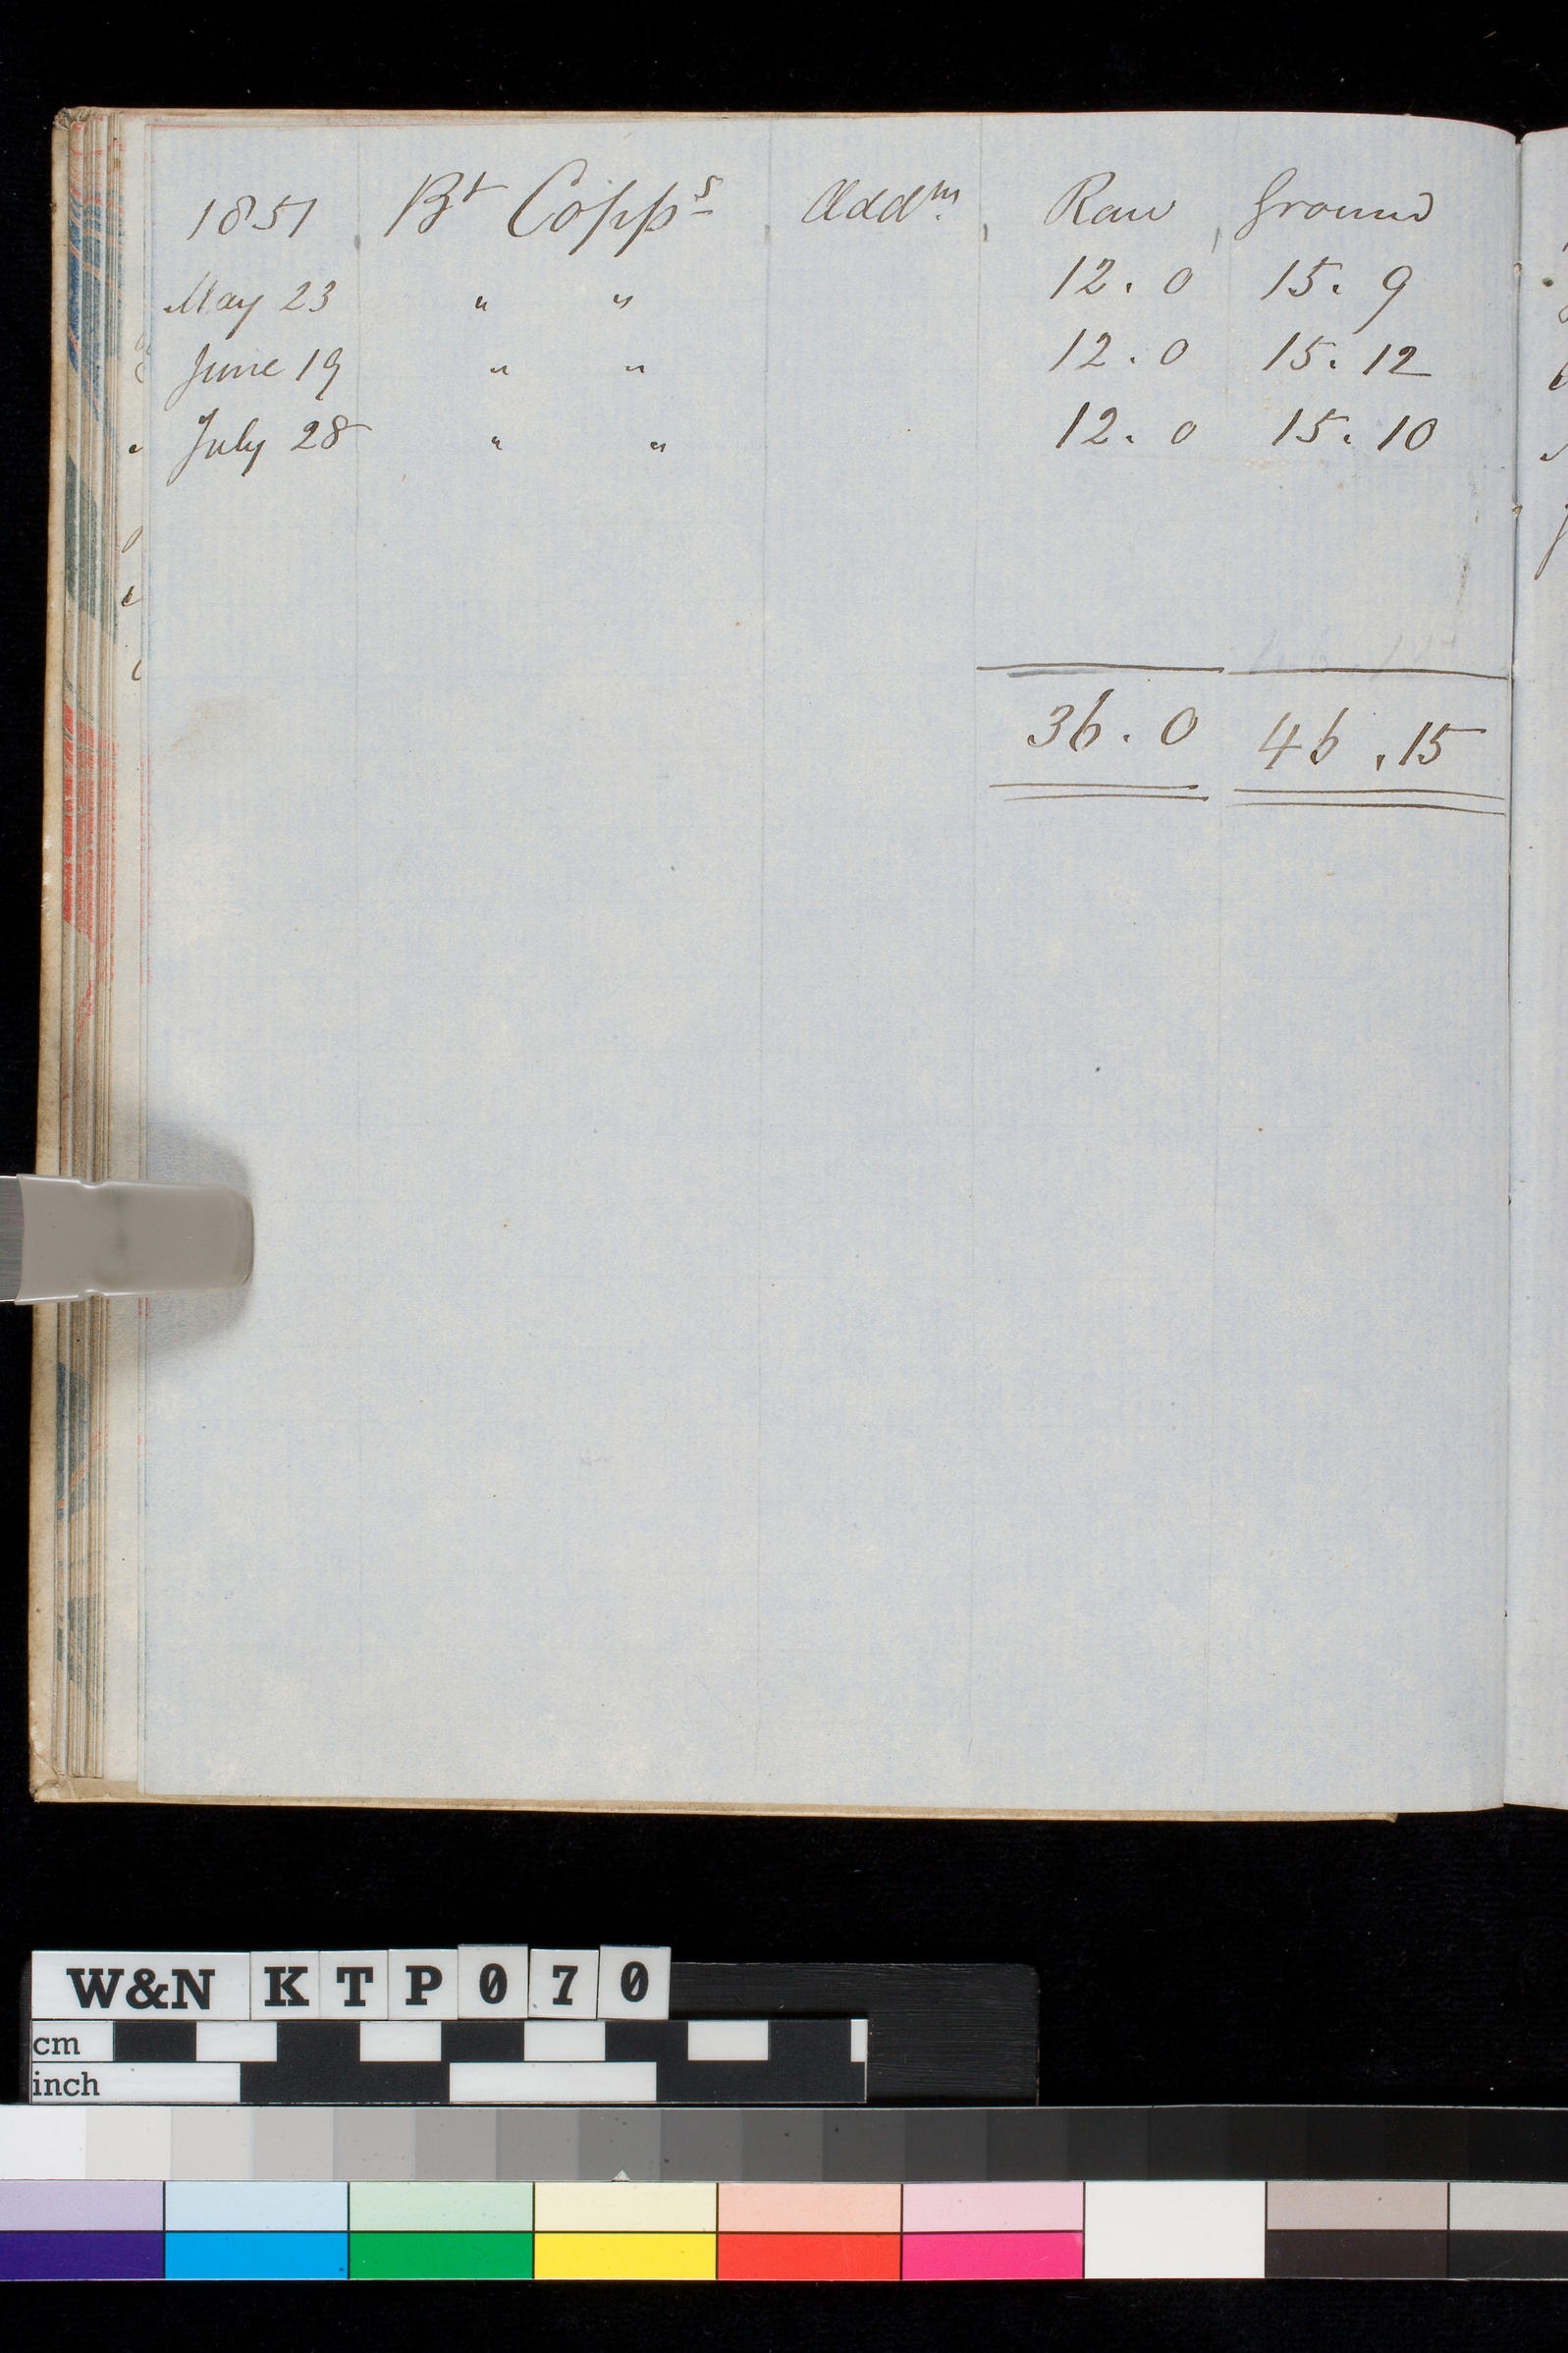 1851 Bt Copps Addns Raw Ground
May 23 " " 12. 0 15. 9
June 19 " " 12. 0 15. 12
July 28 " " 12. 0 15. 10
36. 0 46 .15
W&N KTP070
cm
inch